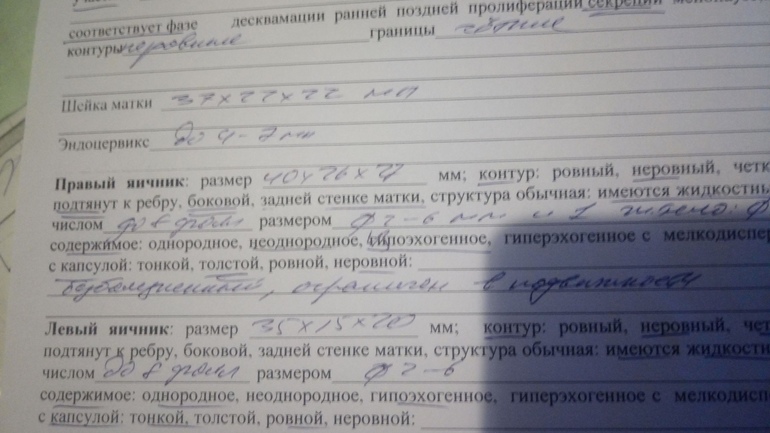 соответствует фазе десквамации ранней поздней пролиферации секреции
контуры неровные границы чёткие
Шейка матки 37х22х22 мм
Эндоцервикс до 4- мм
Правый яичник: размер 40х26х мм; контур: ровный, неровный, четк
подтянут к ребру, боковой, задней стенке матки, структура обычная: имеются жидкостны
числом до 8 размером ф 2-6 мм и 1
содержимое: однородное, неоднородное, гипоэхогенное, гиперэхогенное с мелкодиспер
с капсулой: тонкой, толстой, ровной, неровной:
безболезненный, ограничен в подвижности
Левый яичник: размер 35х15х20 мм; контур: ровный, неровный, чет
подтянут к ребру, боковой, задней стенке матки, структура обычная: имеются жидкост
числом до 8 размером ф 2-6
содержимое: однородное, неоднородное, гипоэхогенное, гиперэхогенное с мелкодиспе
с капсулой: тонкой, толстой, ровной, неровной: